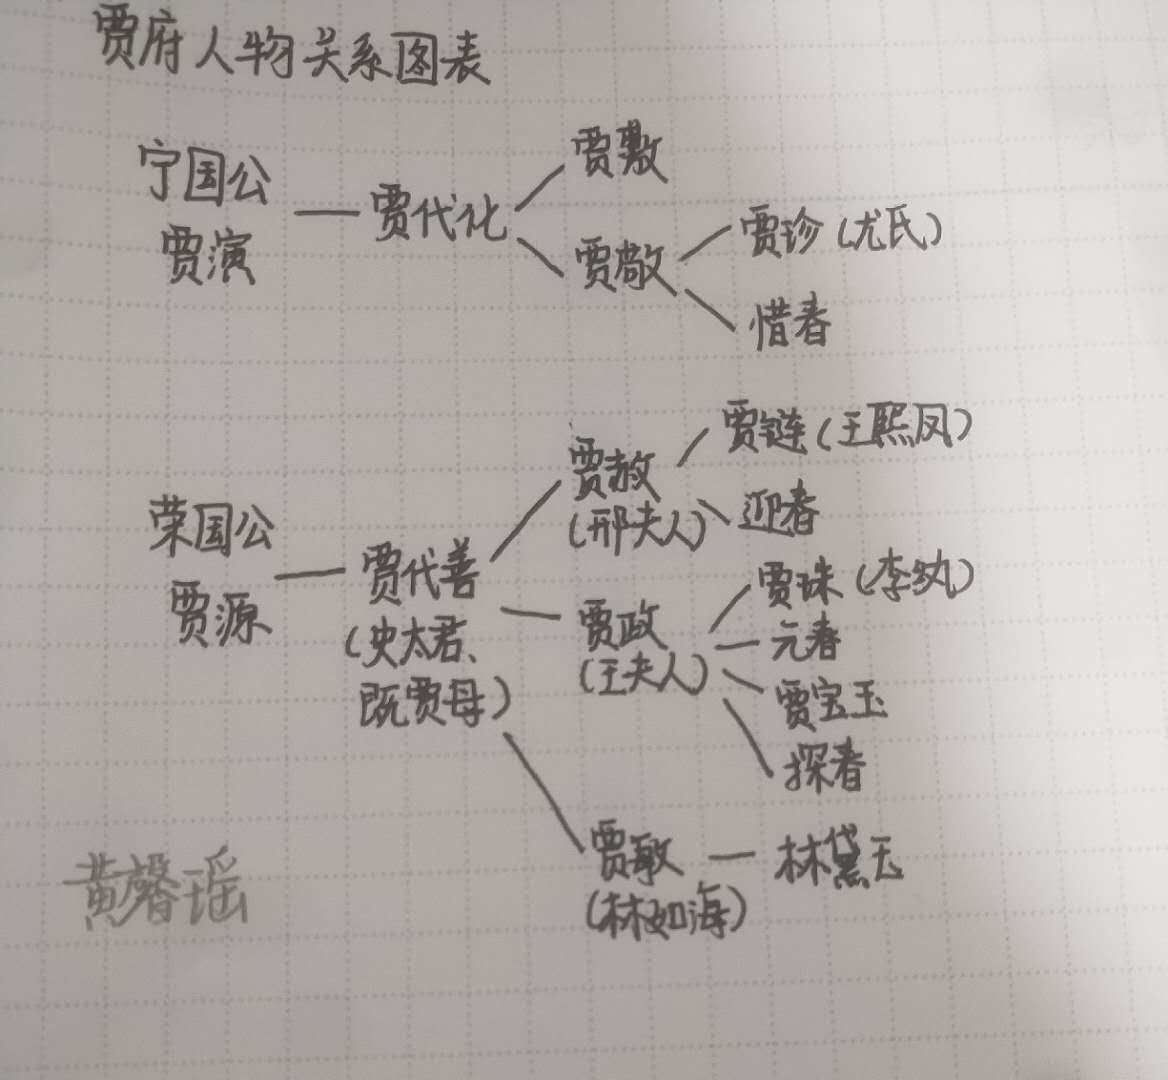 贾府人物关系图表
宁国公
贾演
贾代化
贾敷
贾敬
贾珍(尤氏)
惜春
荣国公
贾源
贾代善
(史太君、
既贾母)
贾赦
(邢夫人)
贾链(王熙凤)
迎春
贾政
(王夫人)
贾珠(李纨)
元春
贾宝玉
探春
贾敏
(林如海)
林黛玉
黄馨瑶